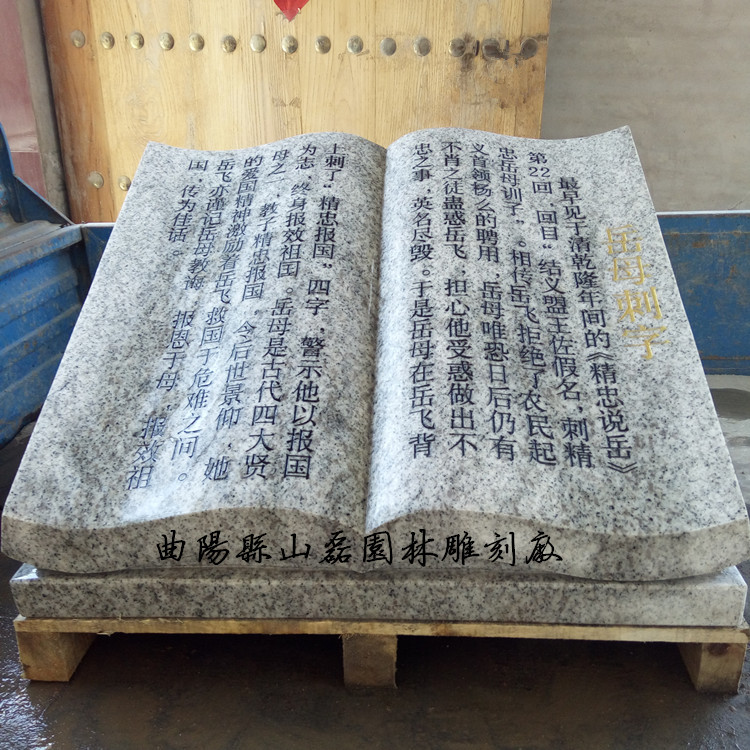 岳母刺字
最早见于清乾隆年间的《精忠说岳》
第22回，回目“结义盟王佐假名，刺精
忠岳母训子”。相传岳飞拒绝了农民起
义首领杨么的聘用，岳母唯恐日后仍有
不肖之徒蛊惑岳飞，担心他受惑做出不
忠之事，英名尽毁。于是岳母在岳飞背
上刺了“精忠报国”四字，警示他以报国
为志，终身报效祖国。岳母是古代四大贤
母之一，教子精忠报国，令后世景仰，她
的爱国精神激励着岳飞救国于危难之间。
岳飞亦谨记岳母教诲，报恩于母，报效祖
国，传为佳话。
曲陽縣山磊園林雕刻廠